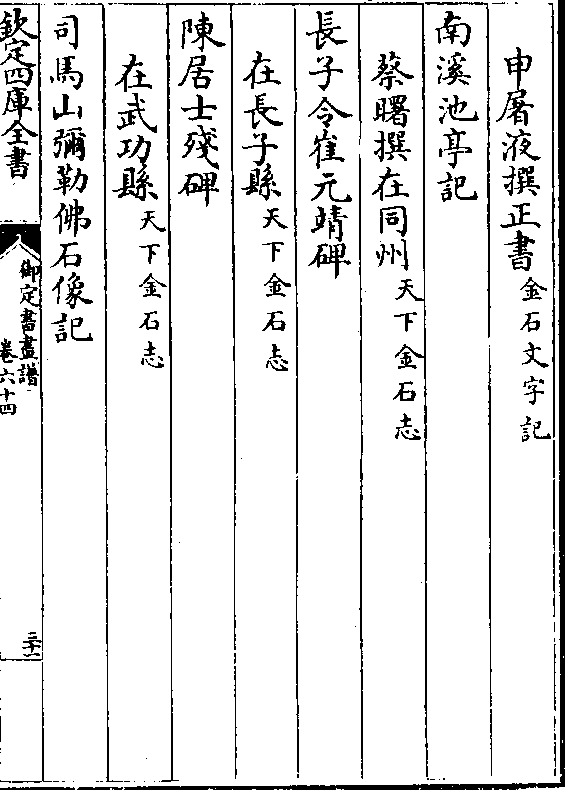 申屠液撰正書金石文字記
南溪池亭記
蔡曙撰在同州天下金石志
長子令崔元靖碑
在長子縣天下金石志
陳居士殘碑
在武功縣天下金石志
司馬山彌勒佛石像記
欽定四庫全書
御定書畫譜
卷六十四
三十一